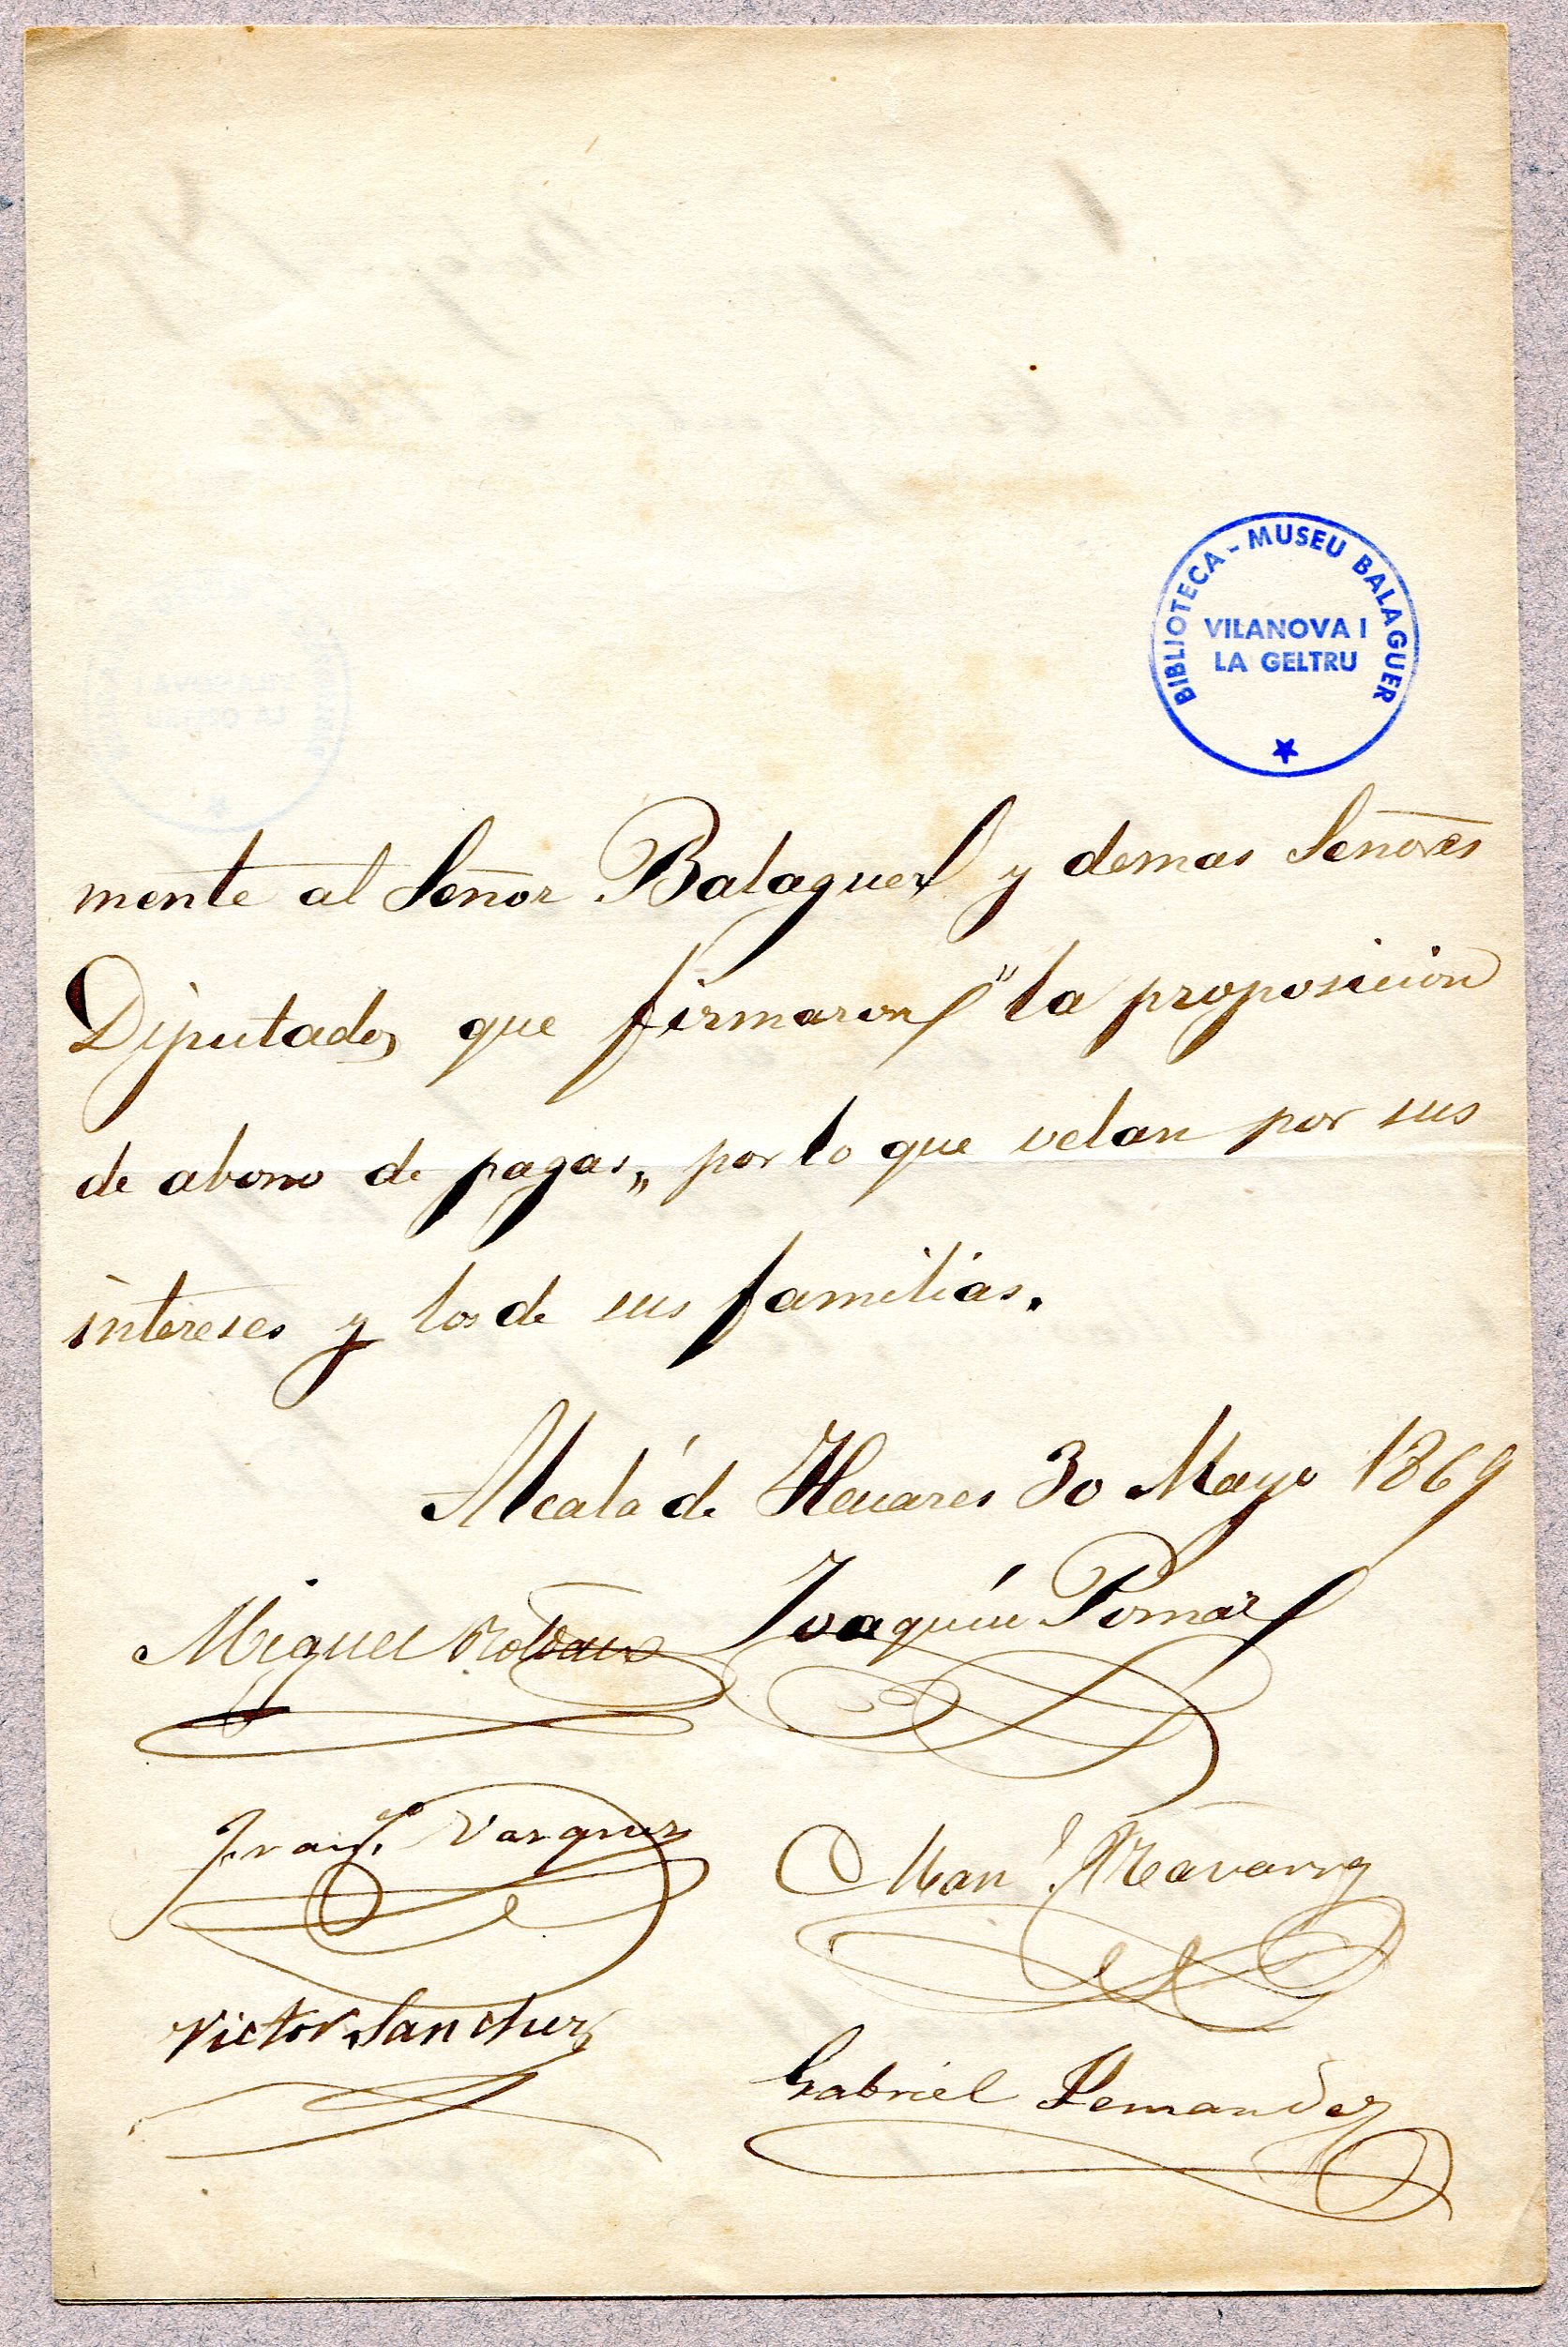 BIBLIOTECA - MUSEU BALAGUER
VILANOVA I
LA GELTRU
mente al Señor Balaguer y demas Señores
Diputados que firmaron "la proposicion
de abono de pagas„ por lo que velan por sus
intereses y los de sus familias.
Alcalá de Henares 30 Mayo 1869
Miguel Roldan Joaquin Pomar
Fran.co Vazquez Man.l Navarro
Victor Sanchez
Gabriel Fernandez